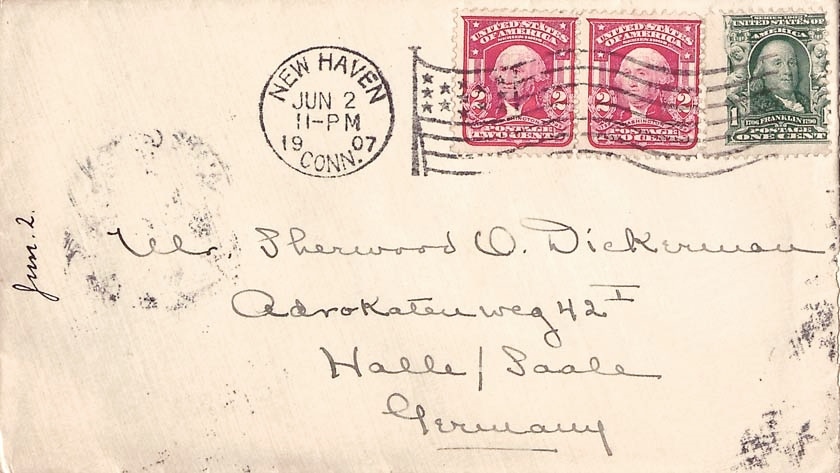 NEW HAVEN
JUN 2
11-PM
1907
CONN.
UNITED STATES
OF AMERICA
2 2
WASHINGTON
POSTAGE
TWO CENTS
UNITED STATES
OF AMERICA
2 2
WASHINGTON
POSTAGE
TWO CENTS
SERIES 1902
UNITED STATES OF
AMERICA
1706 FRANKLIN 1790
1 POSTAGE
ONE CENT
Jun. 2.
Mr. Sherwood O. Dickerman
Advokatenweg 42 I
Halle / Saale
Germany